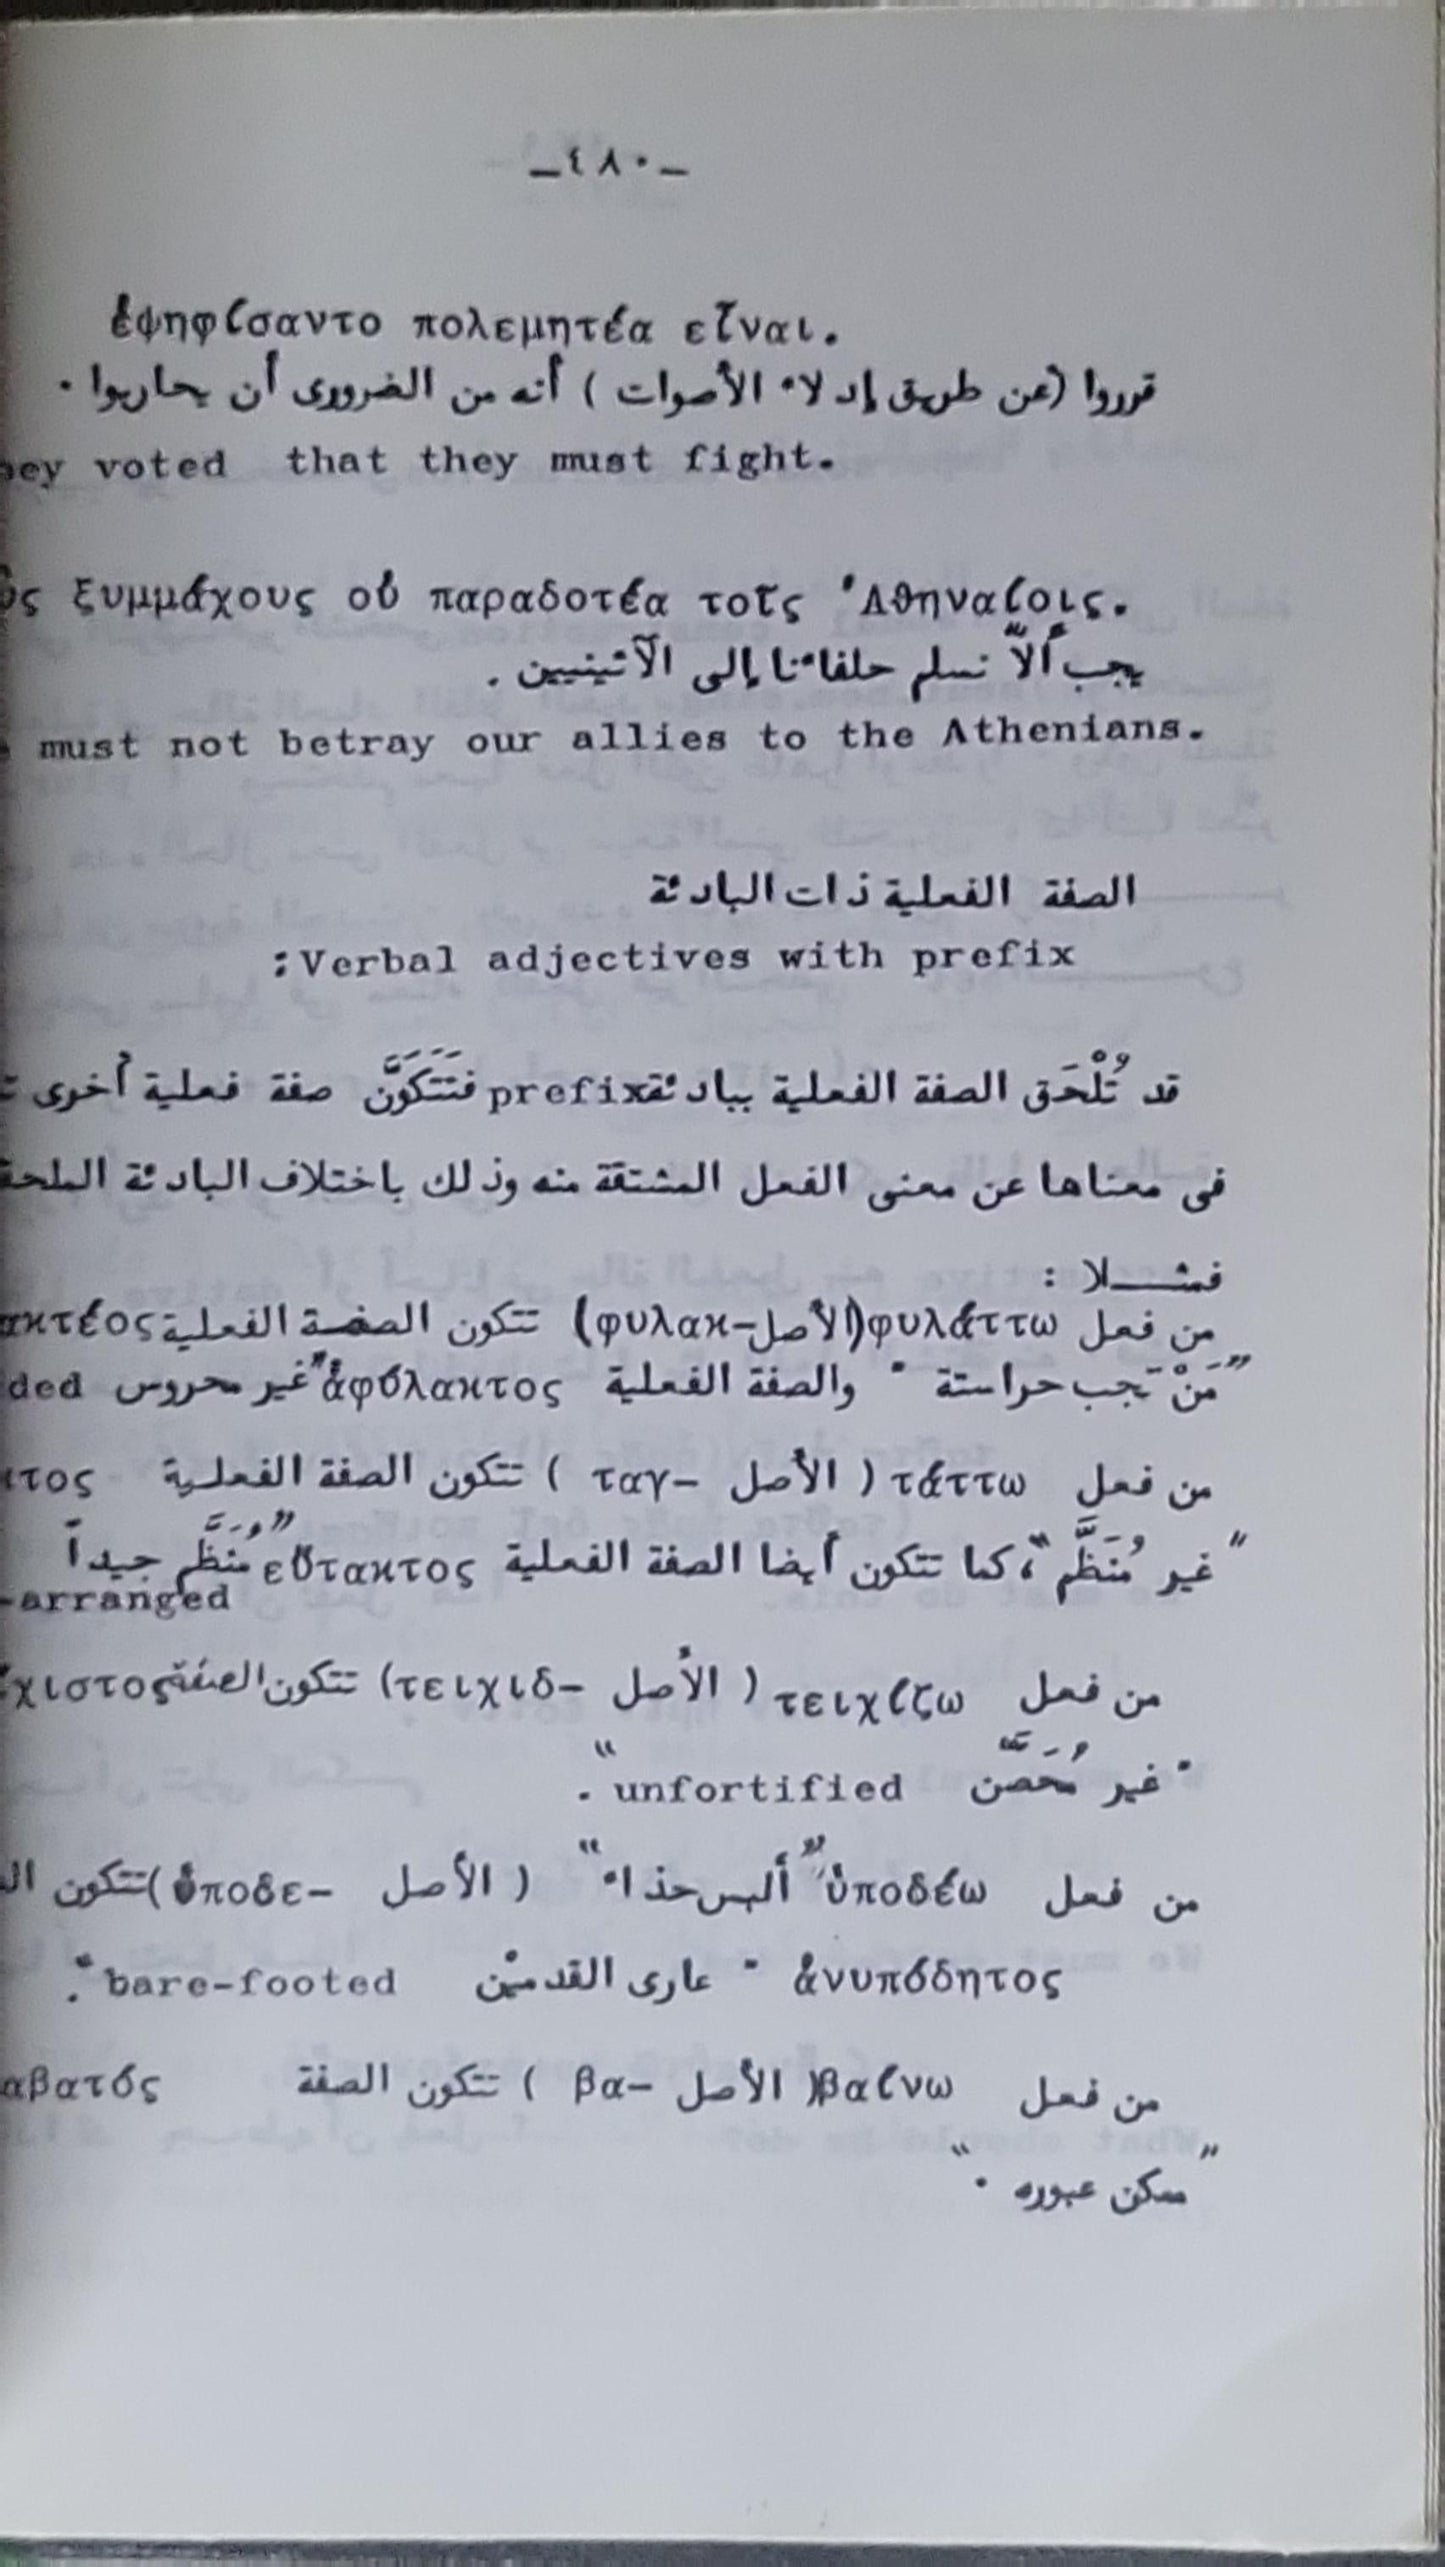 -٤٨٠-
ἐψηφίσαντο πολεμητέα εἶναι.
قرروا (عن طريق إدلاء الأصوات ) أنه من الضرورى أن يحاربوا .
voted that they must fight.
ξυμμάχους οὐ παραδοτέα τοῖς 'Αθηναίοις.
يجب ألاّ نسلم حلفاءنا إلى الآثينيين .
must not betray our allies to the Athenians.
الصفة الفعلية ذات البادئة
:Verbal adjectives with prefix
قد تُلْحَق الصفة الفعلية ببادئة prefix فتَتَكَوَّن صفة فعلية أخرى
فى معناها عن معنى الفعل المشتقة منه وذلك باختلاف البادئة
فمثـــلا :
من فعل φυλάττω (الأصل φυλακ-) تتكون الصفـة الفعلية
"مَنْ تجب حراستة " والصفة الفعلية ἀφύλακτος "غير محروس
من فعل τάττω ( الأصل ταγ- ) تتكون الصفة الفعلـية
" غير مُنَظَّم "، كما تتكون أيضا الصفة الفعلية εὔτακτος "مُنَظَّم جيداً
-arranged
من فعل τειχίζω ( الأصل τειχιδ-) تتكون الصفة
" غير مُحَصَّن unfortified" .
من فعل ὑποδέω "ألبس حذاء" ( الأصل ὑποδε-) تتكون
ἀνυπόδητος " عارى القدميْن bare-footed" .
من فعل βαίνω ( الأصل βα- ) تتكون الصفة
"ممكن عبوره " .